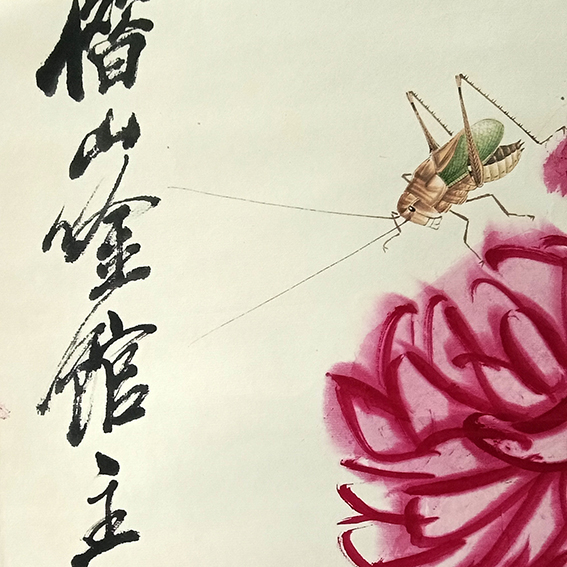 借山唫館主